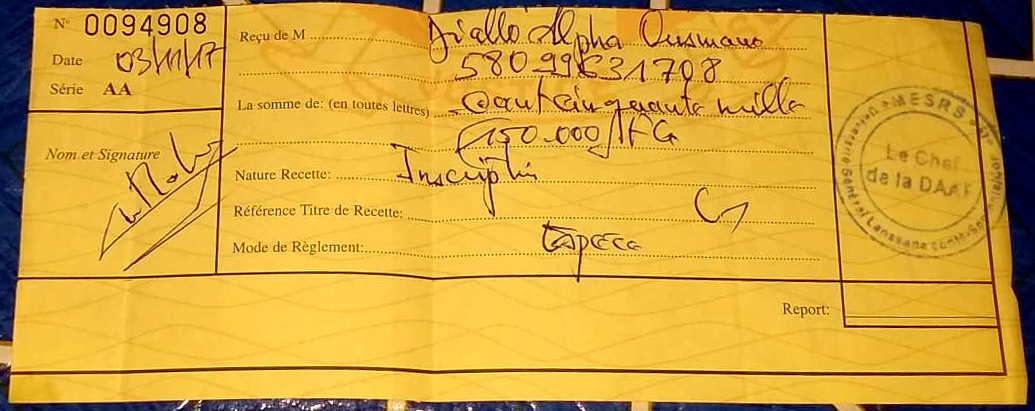 N° 0094908
Date 03/11/17
Série AA
Nom et Signature
Reçu de M Diallo Alpha Ousmane
58099631708
La somme de: (en toutes lettres) Cent cinquante mille
(150.000) FG
Nature Recette: Inscription
Référence Titre de Recette:
Mode de Règlement: Espece
Report:
MESRS
Le Chef
de la DAAF
Université Général Lansana Conté